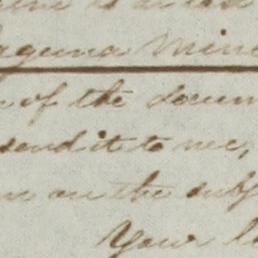 aguna Mine
of the docum
send it to me,
on the subj
Your